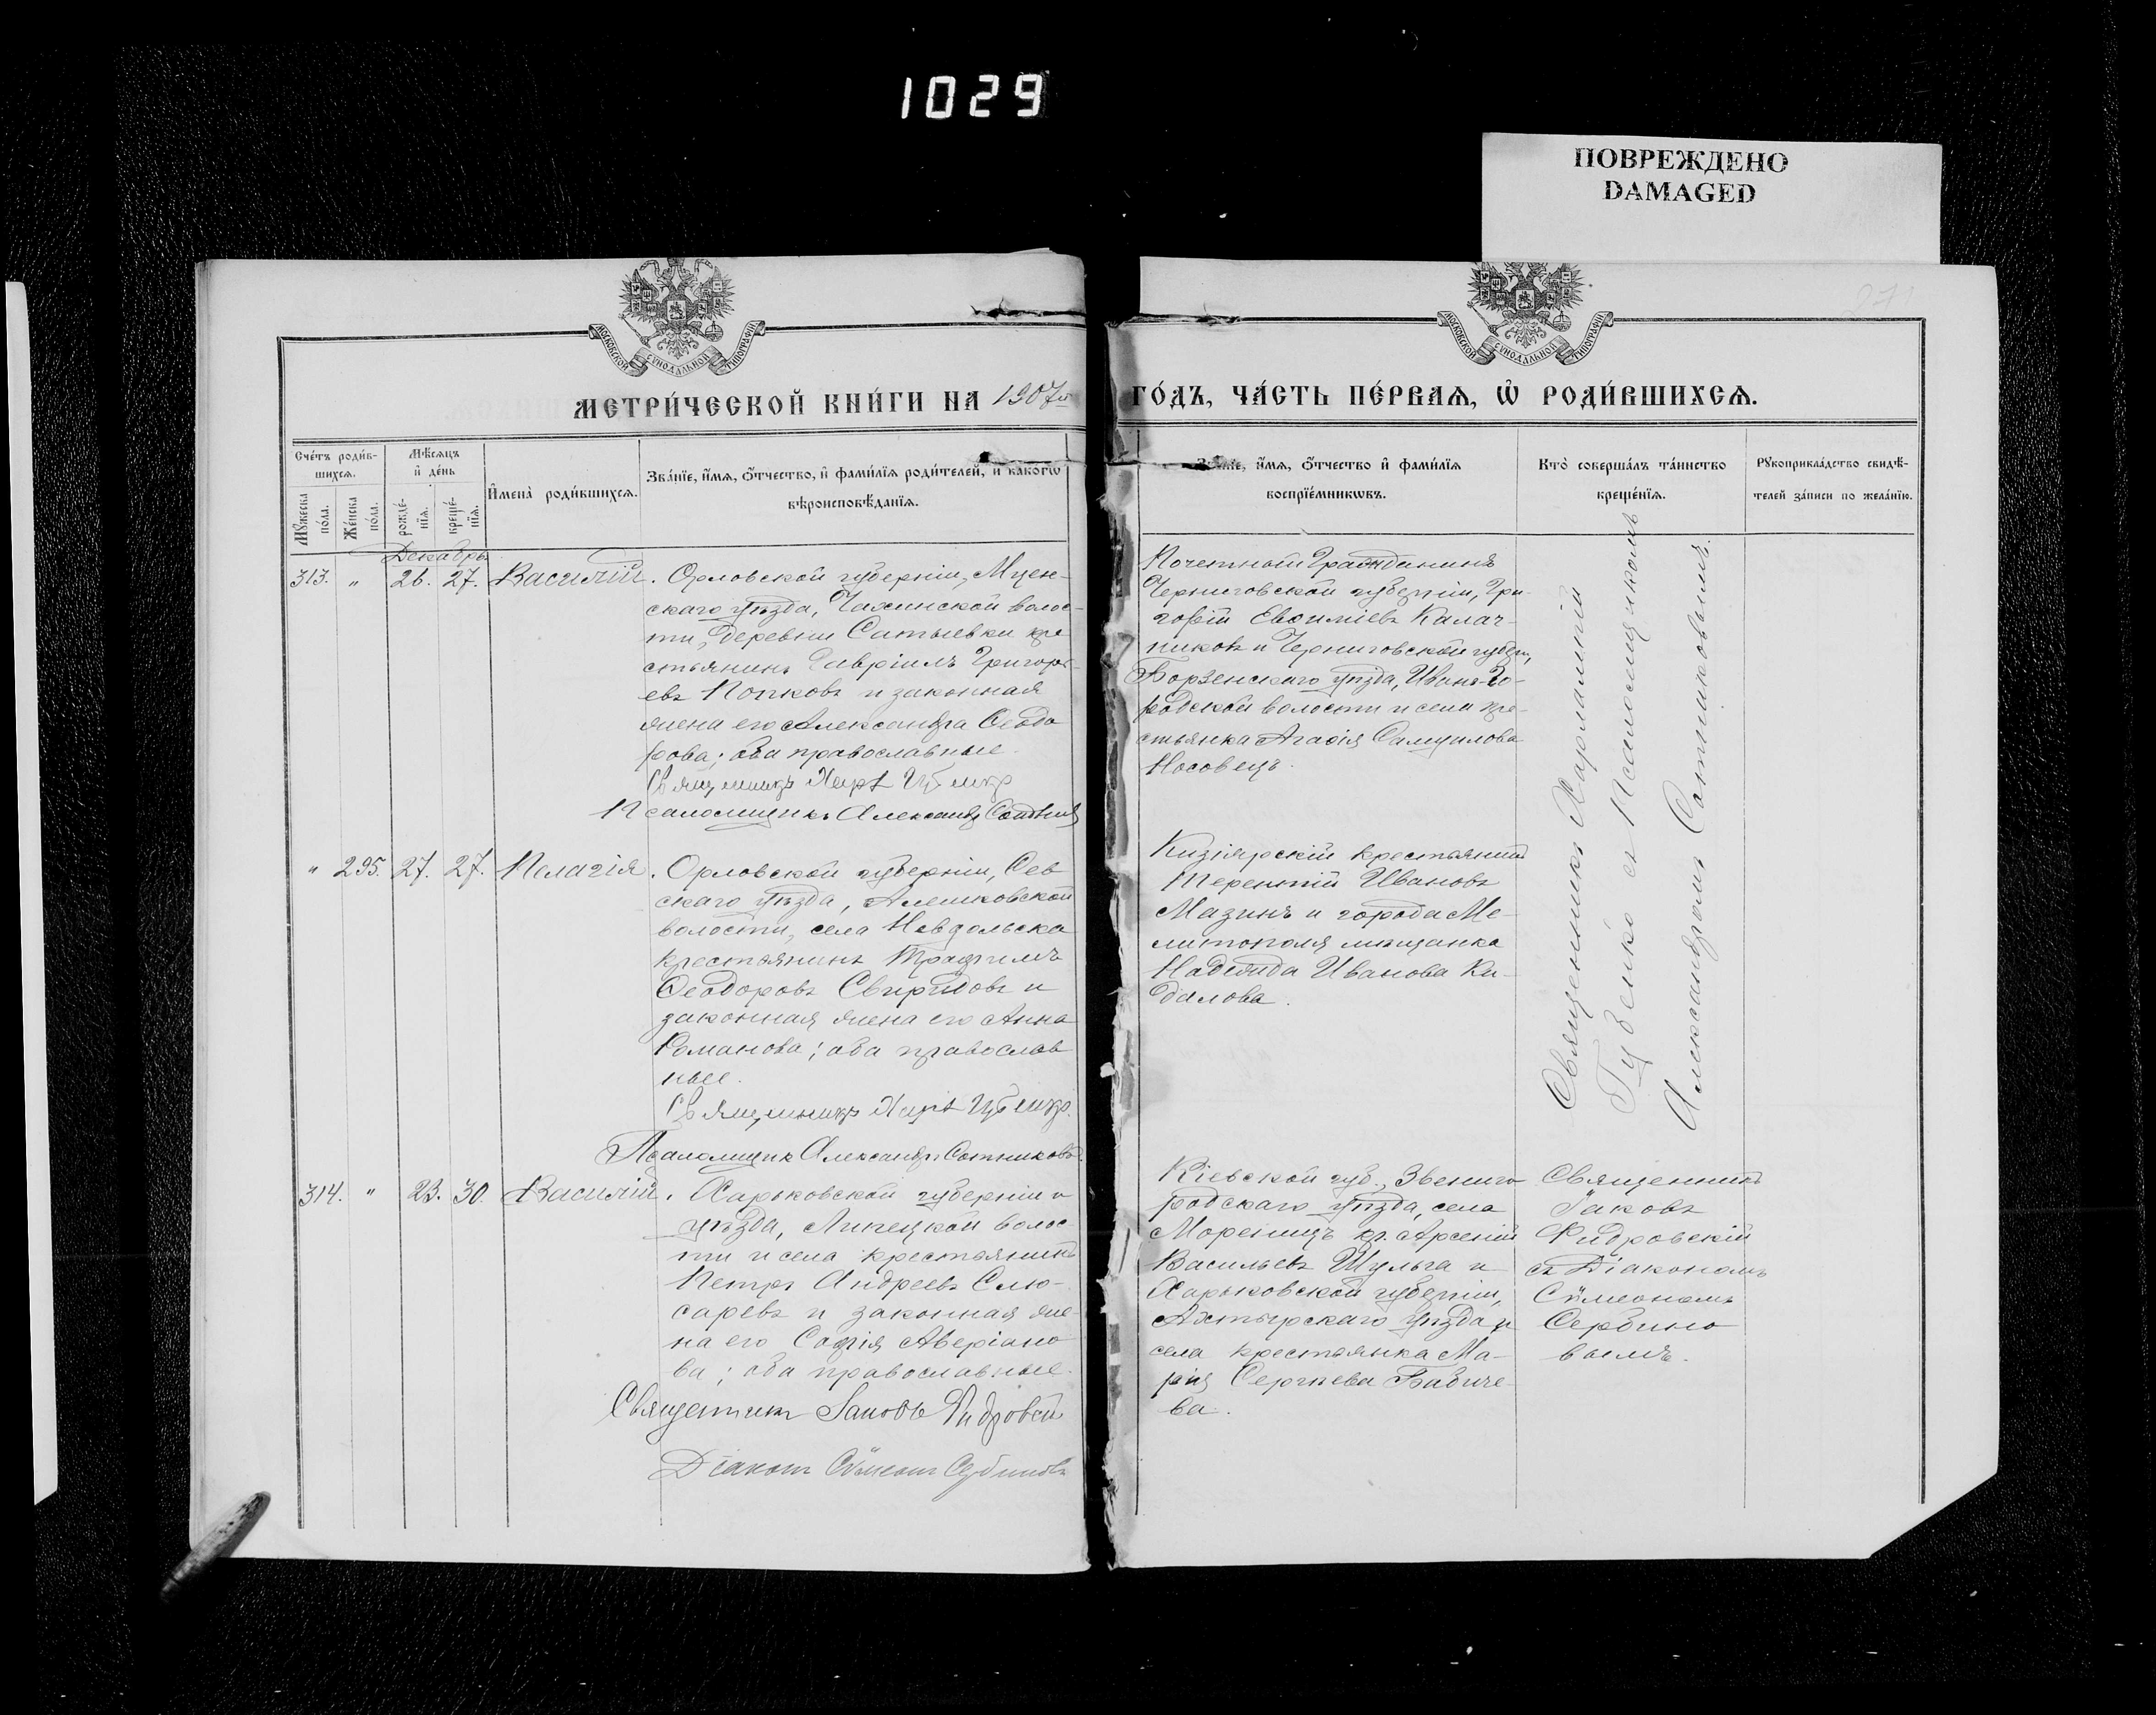 1029
ПОВРЕЖДЕНО
DAMAGED
МОСКОВСКОЙ СѴНОДАЛЬНОЙ ТИПОГРАФІИ
МОСКОВСКОЙ СѴНОДАЛЬНОЙ ТИПОГРАФІИ
27
МЕТРИ́ЧЕСКОЙ КНИ́ГИ НА 1907 го
ГО́ДЪ, ЧА́СТЬ ПЕ́РВАѦ, Ѡ҆ РОДИ́ВШИХСѦ.
Сче́тъ роди́в-
шихсѧ.
Мꙋжеска
по́ла.
Же́нска
по́ла.
Мѣ́сѧцъ
и҆ де́нь
рожде́-
нїѧ.
креще́-
нїѧ.
И҆мена̀ роди́вшихсѧ.
Зва́нїе, и҆́мѧ, ѻ҆́тчество, и҆ фами́лїѧ роди́телей, и҆ како́гѡ
вѣроисповѣ́данїѧ.
Зва́нїе, и҆́мѧ, ѻ҆́тчество и҆ фами́лїѧ
воспрїе́мникѡвъ.
Кто̀ соверша́лъ та́инство
креще́нїѧ.
Рꙋкоприкла́дство свидѣ́-
телей за́писи по жела́нїю.
Декабрь
313. " 26. 27. Василій.
Орловской губерніи, Мцен-
скаго уѣзда, волос-
ти, деревни кре
стьянинъ Гавріилъ Григорь-
евъ Попковъ и законная
жена его Александра Ѳеодо
рова; оба православные.
Священникъ Харл Губенко
Псаломщикъ Александръ Сотник
Почетный Гражданинъ
Черниговской губерніи, Гри-
горій Евѳиміевъ Калач-
никовъ и Черниговской губерн.,
Борзенскаго уѣзда, Иванъ-Го-
родской волости и села кре-
стьянка Агаѳія Самуилова
Носовецъ.
Священникъ Харлампій
Губенко съ Псаломщикомъ
Александромъ Сотниковымъ.
" 295. 27. 27. Пелагія.
Орловской губерніи, Сев
скаго уѣзда, Алешковской
волости, села Невдольска
крестьянинъ Трофимъ
Ѳеодоровъ Свиридовъ и
законная жена его Анна
Романова; оба православ
ные.
Священникъ Харл Губенко.
Псаломщикъ Александръ Сотниковъ.
Кизіярскій крестьянинъ
Терентій Ивановъ
Мазинъ и города Ме-
литополя мѣщанка
Надежда Иванова Ки-
далова.
314. " 23. 30. Василій.
Харьковской губерніи и
уѣзда, Липецкой волос
ти и села крестьянинъ
Петръ Андреевъ Слю-
саревъ и законная же-
на его Софія Аверіано
ва; оба православные.
Священникъ Іаковъ Фидровскій
Діаконъ Сѵмеонъ Сербиновъ
Кіевской губ., Звениго
родскаго уѣзда, села
Моренецъ кр. Арсеній
Васильевъ Шульга и
Харьковской губерніи,
Ахтырскаго уѣзда и
села крестьянка Ма-
рія Сергѣева Бабиче-
ва.
Священникъ
Іаковъ
Фидровскій
съ Діакономъ
Сѵмеономъ
Сербино
вымъ.